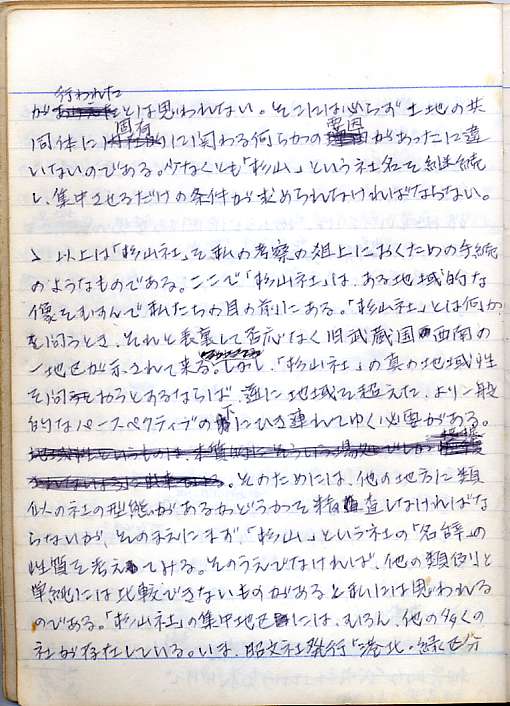 行われた
がとは思われない。そこには必らず土地の共
同体に固有に関わる何らかの要因があったに違
いないのである。少なくとも「杉山」という社名を継続
し、集中させるだけの条件が求められなければならない。
以上は「杉山社」を私の考察の俎上におくための手続
のようなものである。ここで「杉山社」は、ある地域的な
像をむすんで私たちの目の前にある。「杉山社」とは何か
を問うとき、それと表裏して否応なく旧武蔵国西南の
一地区が示されて来る。しかし、「杉山社」の真の地域性
を問わうとするならば、逆に地域を超えた、より一般
的なパースペクティブの下にひき連れてゆく必要がある。
そのためには、他の地方に類
似の社の型態があるかどうかを精査しなければな
らないが、そのまえにまず、「杉山」という社の「名辞」の
性質を考えてみる。そのうえでなければ、他の類例と
単純には比較できないものがあると私には思われる
のである。「杉山社」の集中地区には、むろん、他の多くの
社が存在している。いま、昭文社発行「港北・緑区分